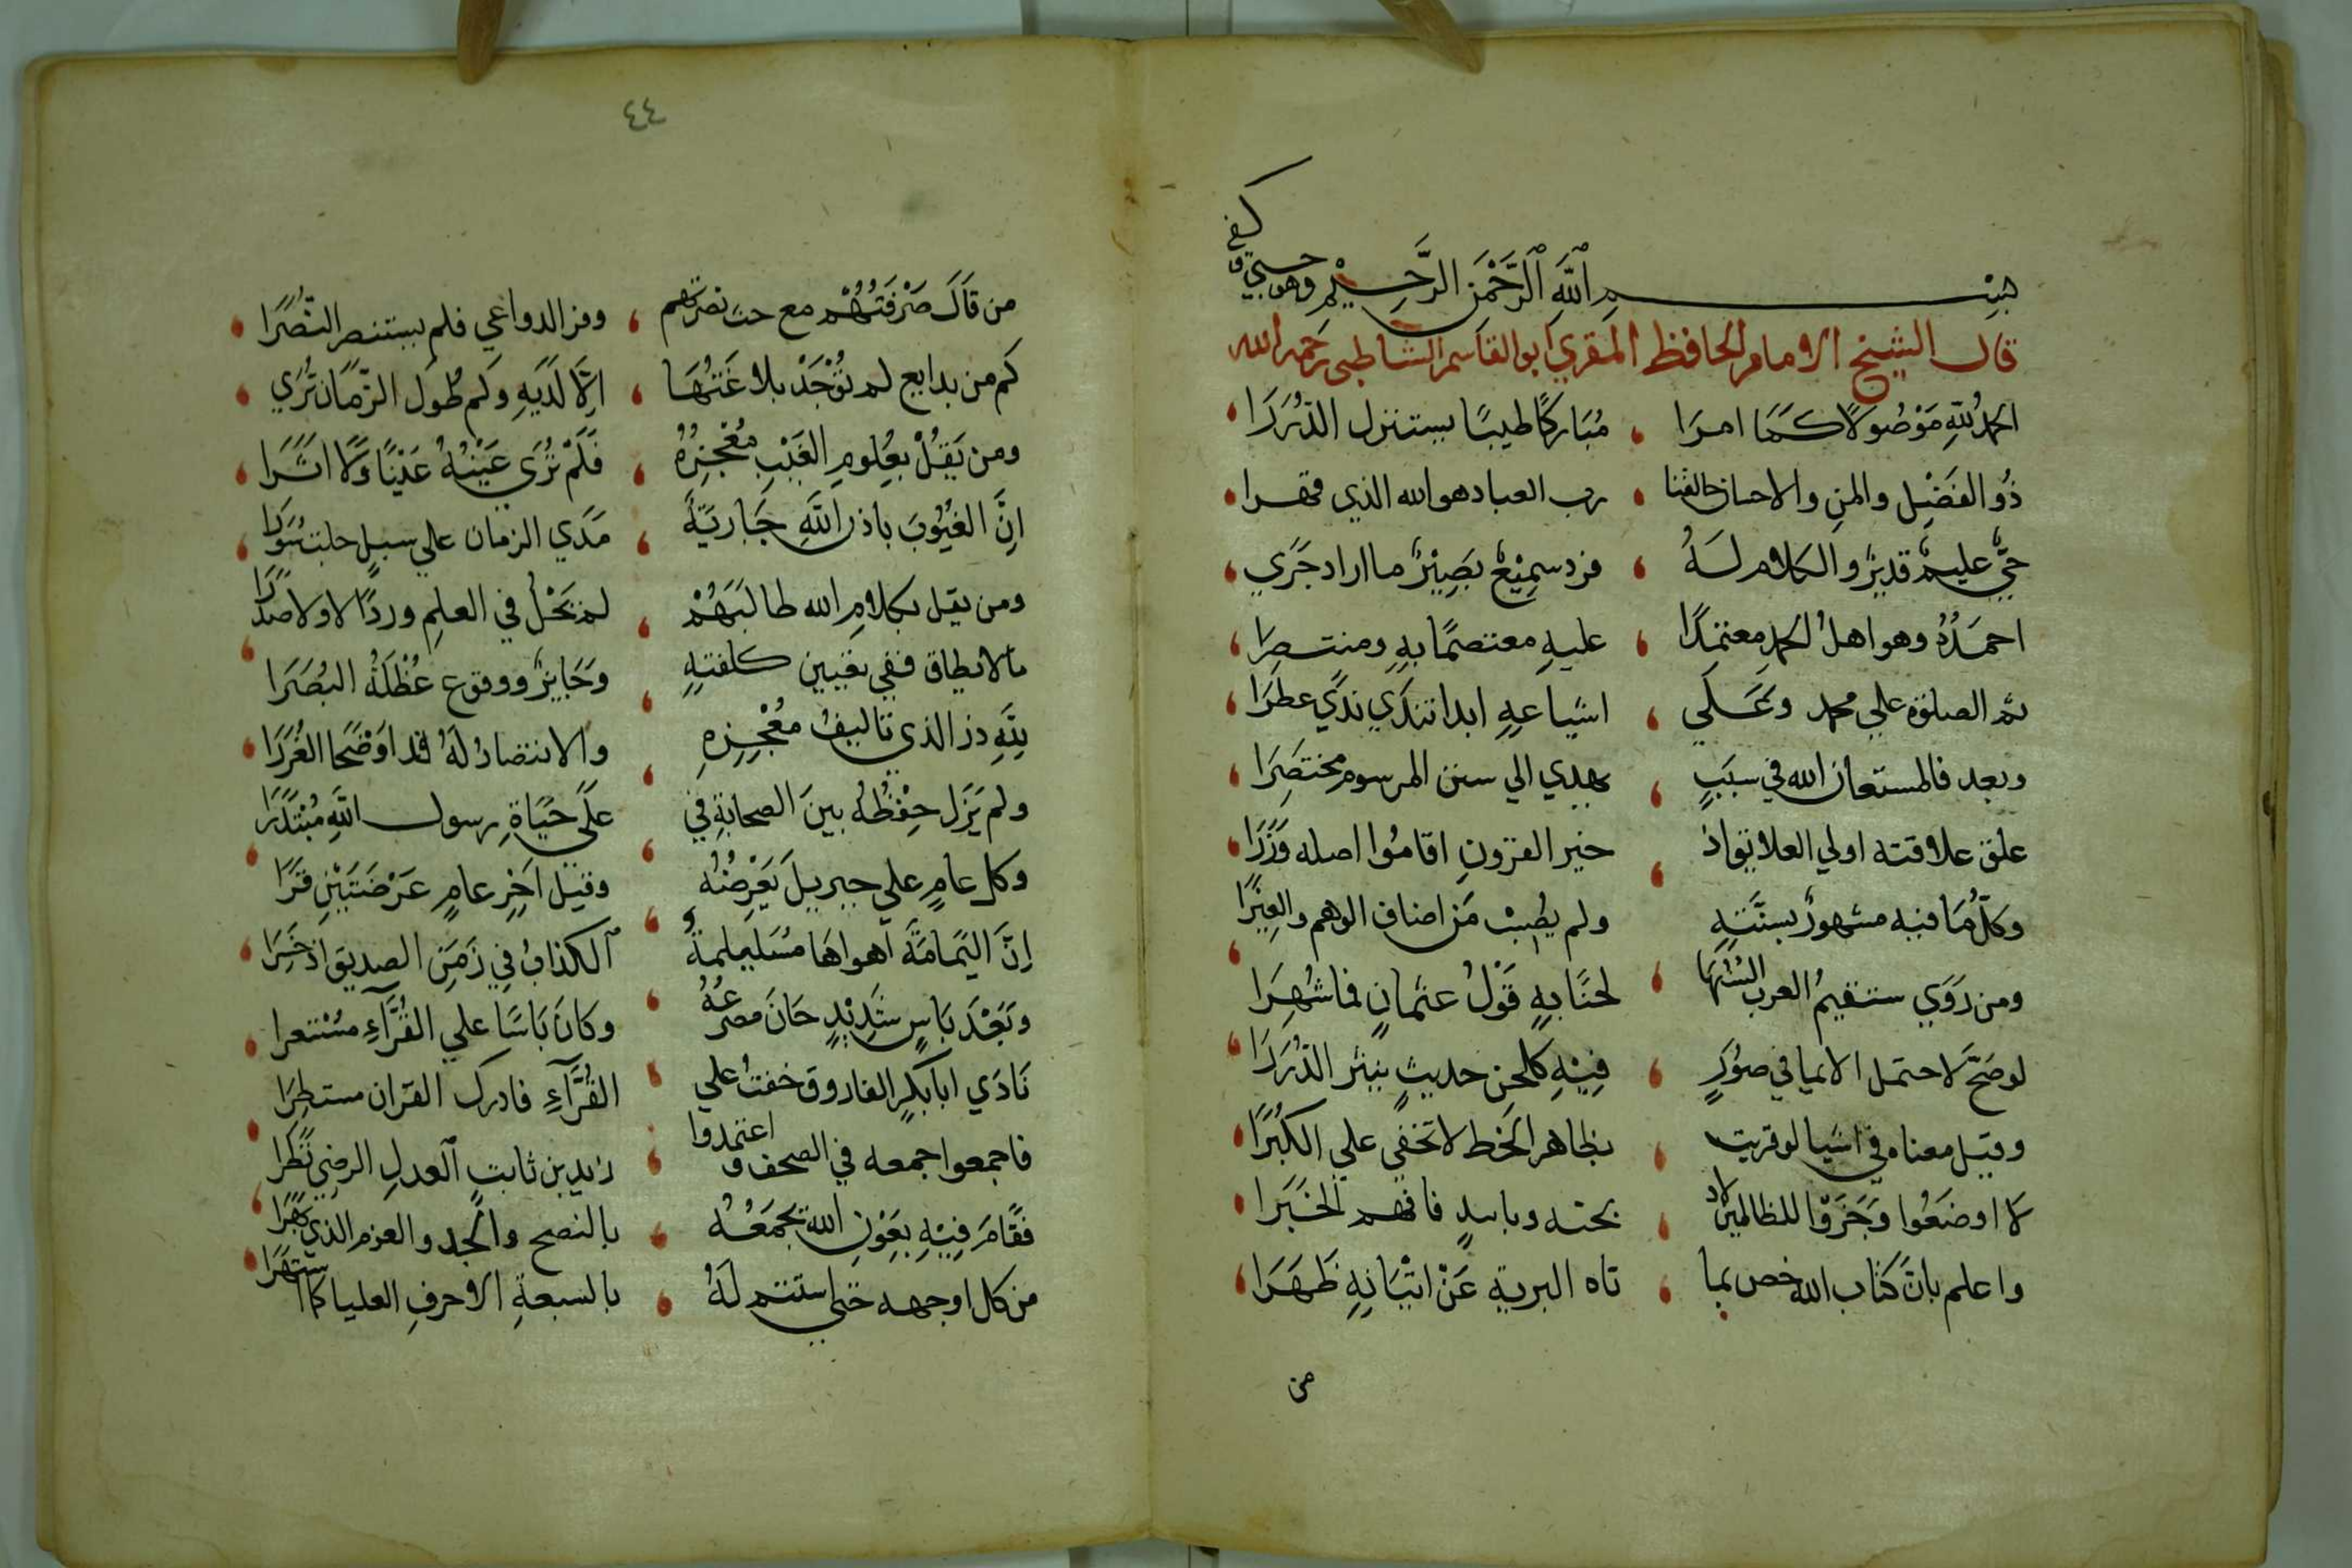 بِسْمِ اللَّهِ الرَّحْمَنِ الرَّحِيْمِ وهو حسبي وكفى
قال الشيخ الامام الحافظ المقري ابو القاسم الشاطبي رحمه الله
الحمد للهِ مَوْصُولًا كَمَا امرَا ، مُبَاركًا طيبًا يستنزل الدُّرَرَا ،
ذُو الفَضْلِ والمنِ والاحسان خالقنا ، رب العباد هو الله الذي قهرا ،
حَيٌّ عليمٌ قديرٌ والكلام لهُ ، فرد سمِيْعٌ بَصِيْرٌ ما اراد جَرَي ،
احمَدُهُ وهو اهلُ الحمدِ معتمدًا ، عليهِ معتصمًا بهِ ومنتصِرَا ،
ثم الصلوة علي محمد وَعَلَي ، اشياعهِ ابدا تندَي نَدًي عطرَا ،
وبعد فالمستعان الله في سبَبٍ ، يهدي الي سنن المرسوم مختصَرَا ،
علق علاقته اولي العلايق اذ ، خير القرونِ اقامُوا اصله وَزَرَا ،
وَكلُّ مَا فيه مشهورٌ بسنَّتهِ ، ولم يصبْ مَن اضاف الوهم والغِيَرَا ،
ومن رَوَي ستقيمُ العرب السنُهَا ، لحنًا بهِ قَوْلُ عثمانٍ فما شُهِرَا ،
لو صَحَّ لاحتمل الايما في صُوَرٍ ، فِيْهِ كلحن حديثٍ ينثر الدُّرَرَا ،
وقيل معناه في اشيا لو قريت ، بظاهر الخط لا تخفي علي الكُبَرَا ،
لا اوضعُوا وَجَزَؤا للظالمين لا اذ ، بحنه وبايدٍ فافهم الخَبَرا ،
واعلم بانَّ كتاب الله خص بما ، تاه البرية عَنْ اتْيَانِهِ ظَهَرَا ،
من
٤٤
من قَالَ صَرْفَتُهُمْ مع حث نصرتهم ، وفر الدواعي فلم يستنصر النُّصُرَا ،
كم من بدايع لم تُوْجَدْ بلاغَتُهَا ، اِلَّا لَدَيهِ وكم طُولَ الزَّمَان تُرَي ،
ومن يَقُلْ بعُلومِ الغَيْبِ مُعْجِزُهُ ، فَلَمْ تُرَي عَيْنُهُ عَيْنًا وَلَا اثَرَا ،
اِنَّ الغُيُوبَ باذن اللهِ جَارِيَةٌ ، مَدَي الزمان علي سبلٍ جلت سُوَرَا ،
ومن يقل بكلامِ الله طالبَهُمْ ، لم يَحْلُ في العلمِ وردًا لا ولا صَدَرَا ،
ما لا يطاق ففي تعيين كلفتهِ ، وَجَايزٌ ووقوع عُضْلَةُ البُصَرَا ،
للهِ در الذي تاليفُ مُعْجِزِهِ ، والانتصارُ لهُ قد اوضَحَا الغُرَرَا ،
ولم يَزَل حِفْظُهُ بينَ الصحابةِ في ، عَلَي حَيَاةِ رسول اللهِ مُبْتَدَرَا ،
وكل عامٍ علي جبريلَ يَعْرِضُهُ ، وقيل اخِرِ عامٍ عَرْضَتَيْنِ قَرَا ،
اِنَّ اليَمامَةَ اَهواهَا مُسَيلمةُ ، الكذابُ في زَمَنِ الصديق اذ خَسِرَا ،
وبَعْدَ بَاسٍ شَدِيْدٍ حَانَ مصرعُهُ ، وكانَ بَاسًا علي القُرَّآءِ مُسْتعرا ،
نَادَي ابا بكرٍ الفاروق خفتُ علي ، القُرَّآءِ فادرك القران مستطِرَا ،
فاجمعوا جمعه في الصحف واعتمدوا ، زيد بن ثابت العدلِ الرضي نَظَرا ،
فَقَامَ فِيْهِ بعَوْنِ اللهِ يجمَعُهُ ، بالنصح والجد والعزم الذي بَهَرَا ،
من كل اوجهه حتي استتم لهُ ، بالسبعةِ الاحرفِ العليا كما اشتهرَا ،